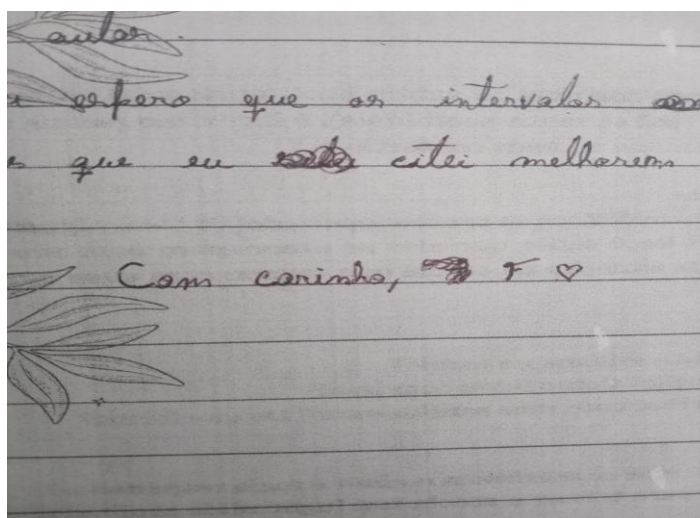 aulas.
espero que os intervalos
que eu citei melhorem
Com carinho, F ♡